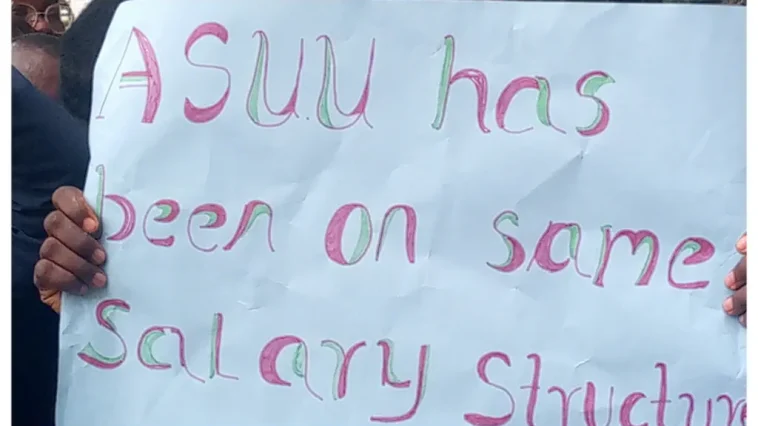 ASUU has
been on same
Salary Structure